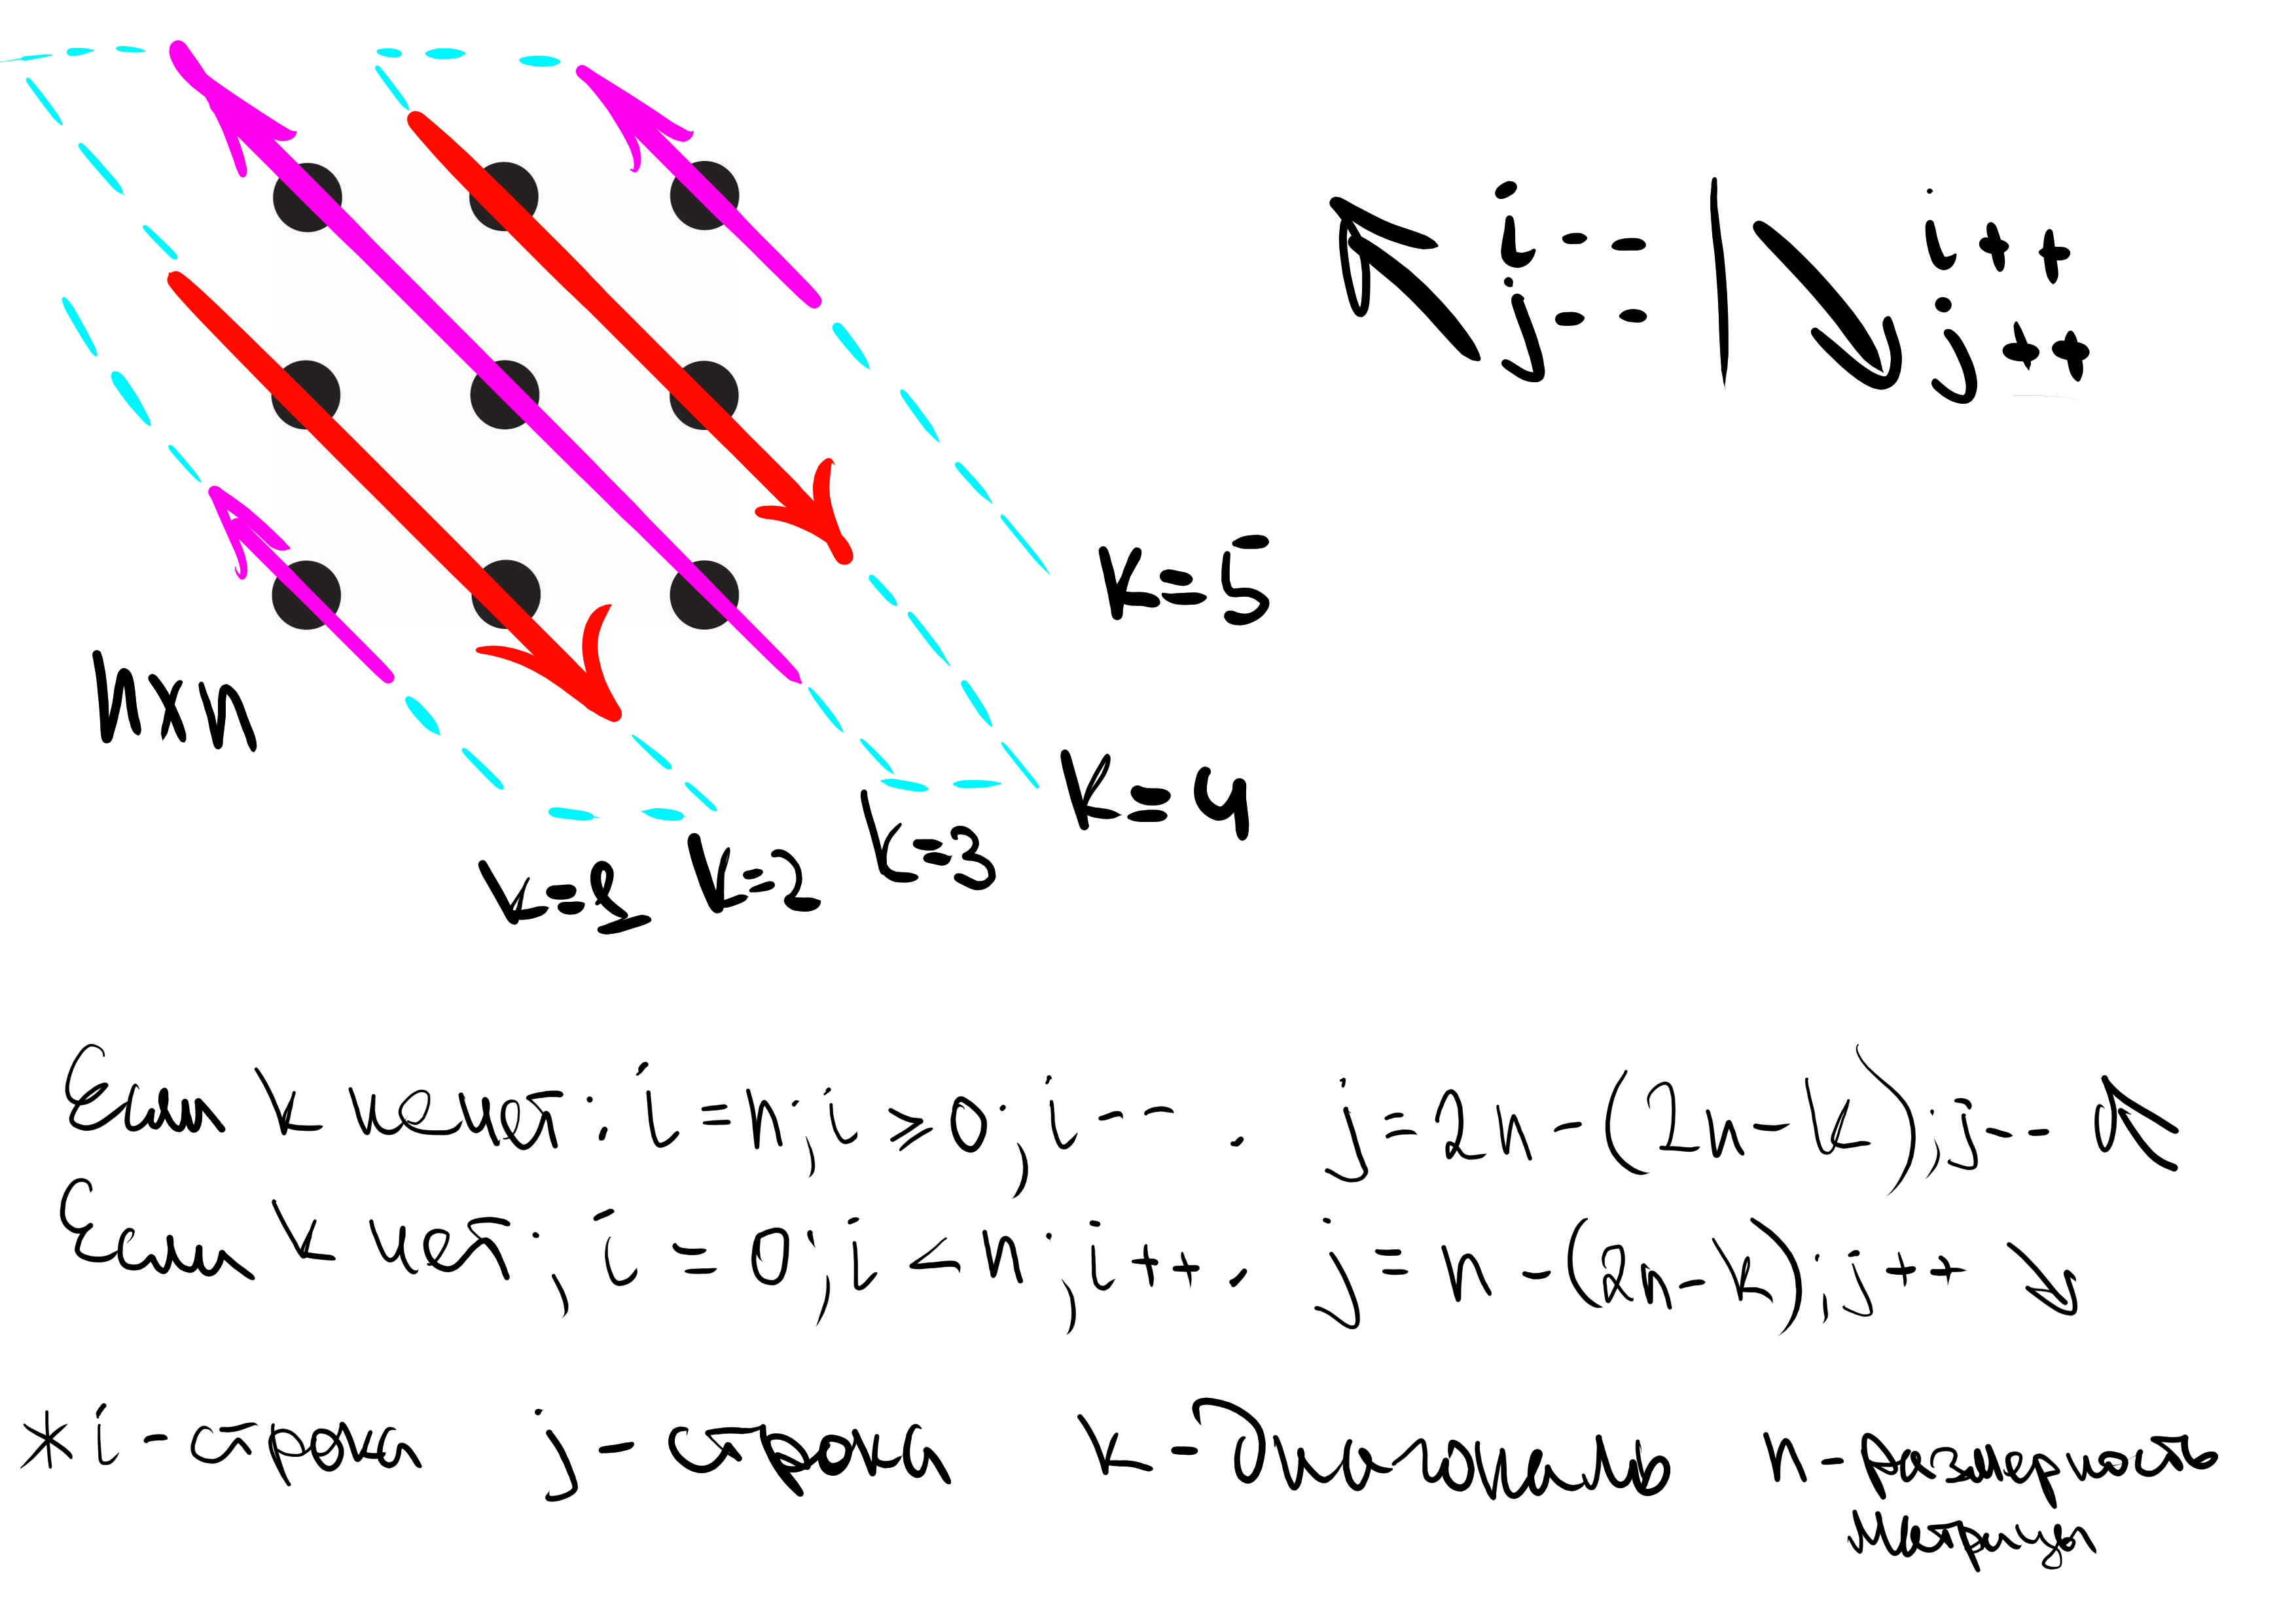 i--
j--
i++
j++
k=5
n×n
k=4
k=1 k=2 k=3
Если k нечёт: i=n; i≥0; i-- . j=2n-(2n-k); j--
Если k чёт; i=0; i<n; i++ , j=n-(2n-k); j++
* i - строка j - строка k - диагональ n - размерность
матрицы